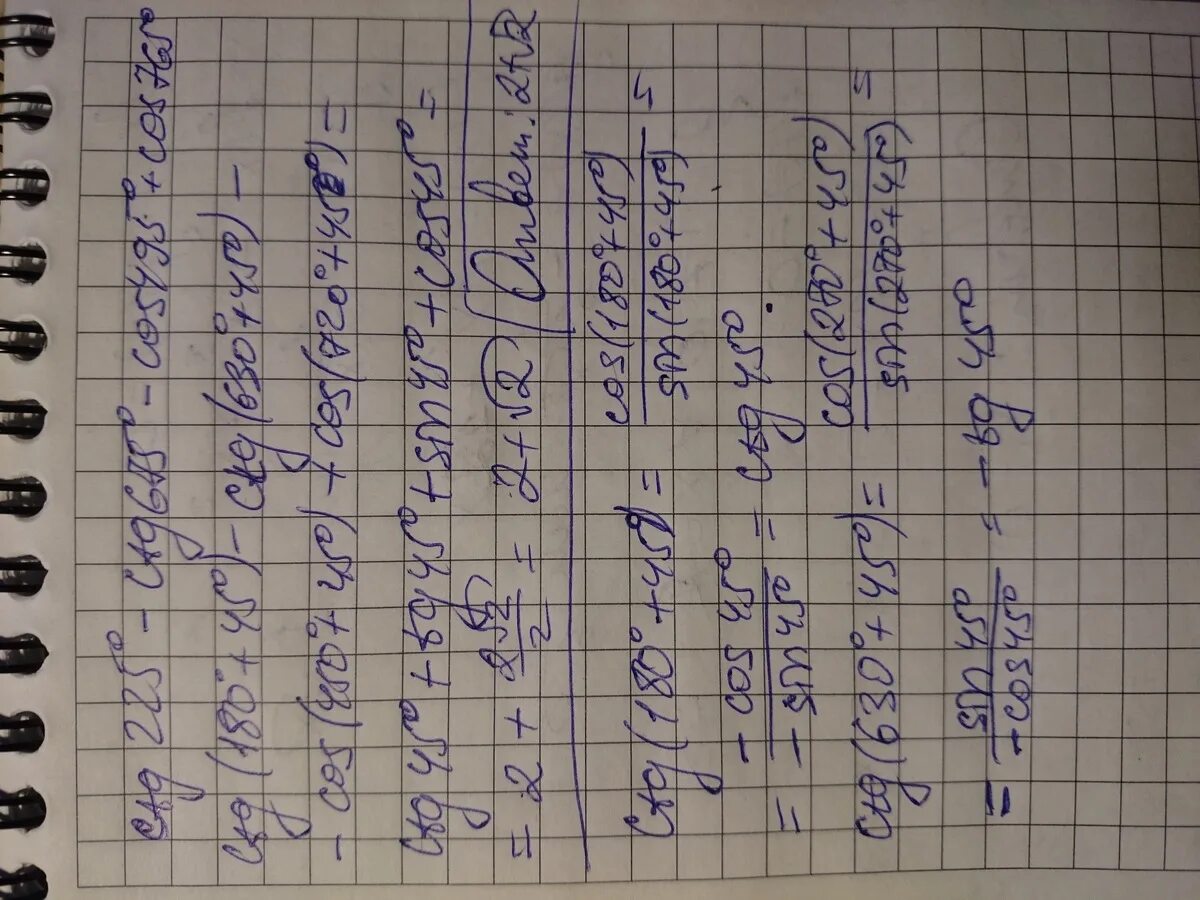 ctg 225° - ctg 675° - cos 495° + cos 765°
ctg (180° + 45°) - ctg (630° + 45°) -
- cos (450° + 45°) + cos (720° + 45°) =
ctg 45° + tg 45° + sin 45° + cos 45° =
= 2 + 2√2/2 = 2 + √2 Ответ: 2+√2
ctg (180° + 45°) = cos (180° + 45°) / sin (180° + 45°) =
= - cos 45° / - sin 45° = ctg 45°
ctg (630° + 45°) = cos (270° + 45°) / sin (270° + 45°) =
= sin 45° / - cos 45° = - tg 45°